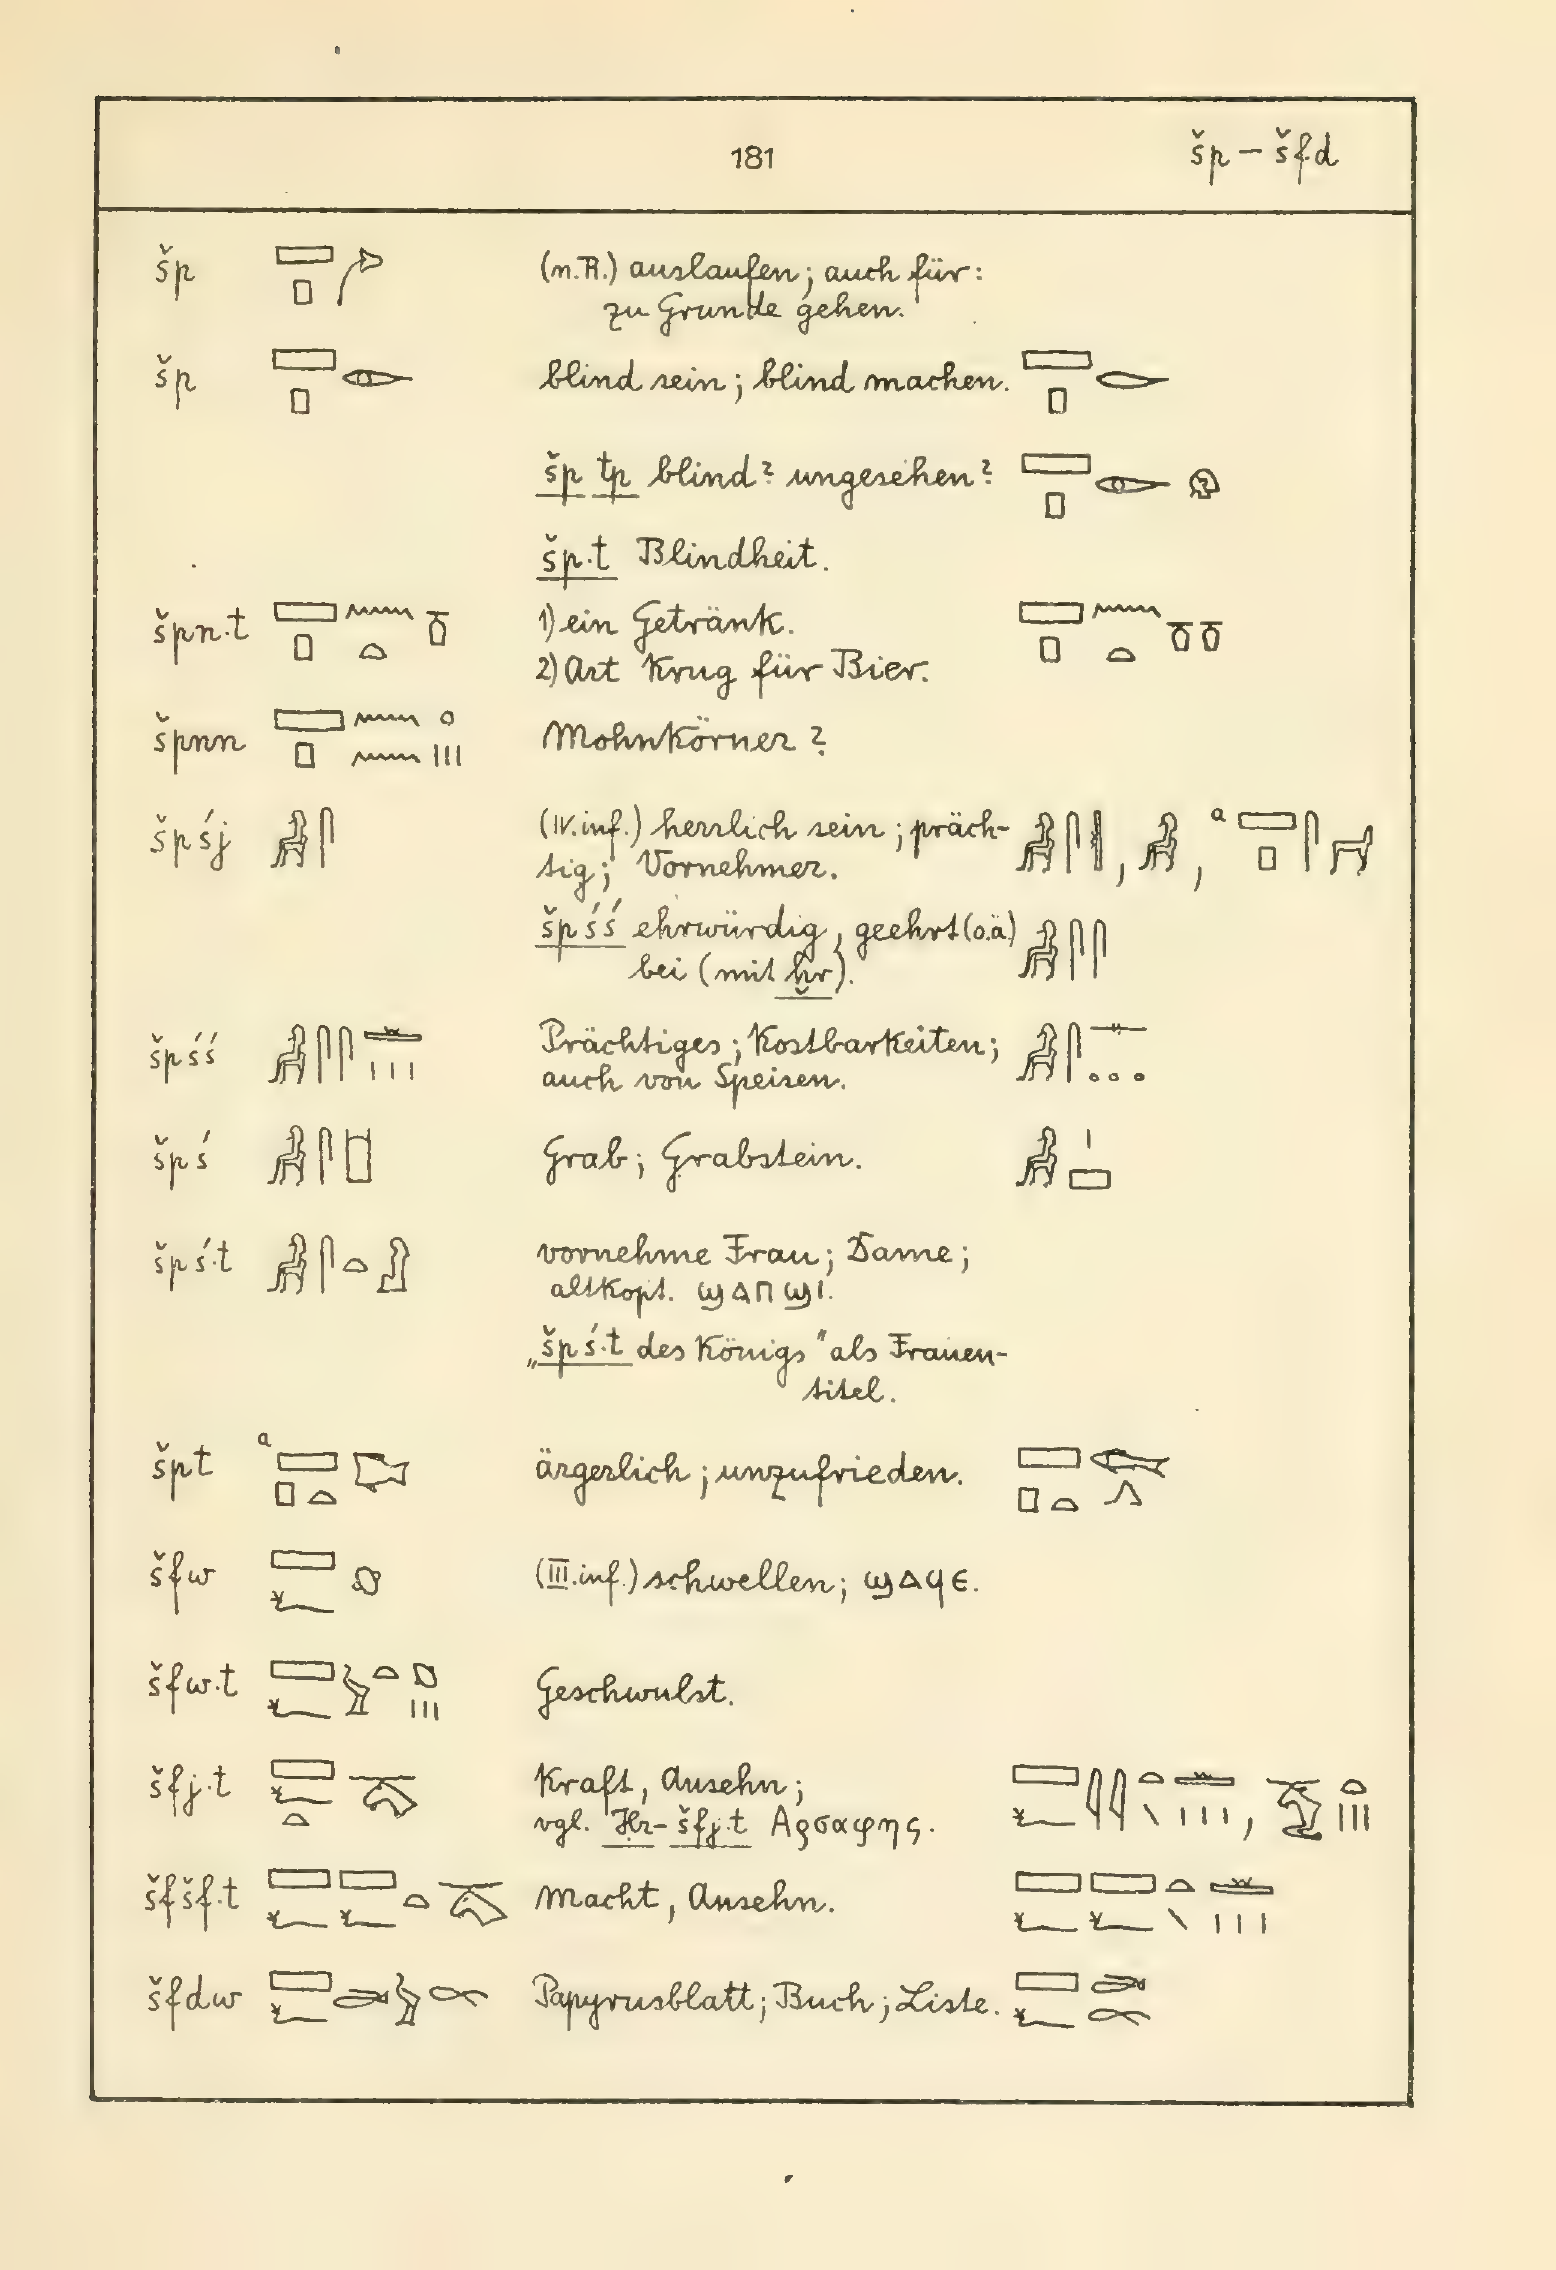 181
šp – šfd
šp (m.R.) auslaufen; auch für:
zu Grunde gehen.
šp blind sein; blind machen.
šp tp blind? ungesehen?
šp·t Blindheit.
špn·t 1) ein Getränk.
2) Art Krug für Bier.
špnn Mohnkörner?
špśj (IV. inf.) herrlich sein; präch-
tig; Vornehmer.
špśś ehrwürdig, geehrt (o.ä.)
bei (mit ḫr).
špśś Prächtiges; Kostbarkeiten;
auch von Speisen.
špś Grab; Grabstein.
špś·t vornehme Frau; Dame;
altkopt. ϣⲁⲡϣⲓ.
„špś·t des Königs" als Frauen-
titel.
špt ärgerlich; unzufrieden.
šfw (III. inf.) schwellen; ϣⲁϥⲉ.
šfw·t Geschwulst.
šfj·t Kraft, Ansehn;
vgl. Ḥr-šfj·t Αρσαφης.
šfšf·t Macht, Ansehn.
šfdw Papyrusblatt; Buch; Liste.